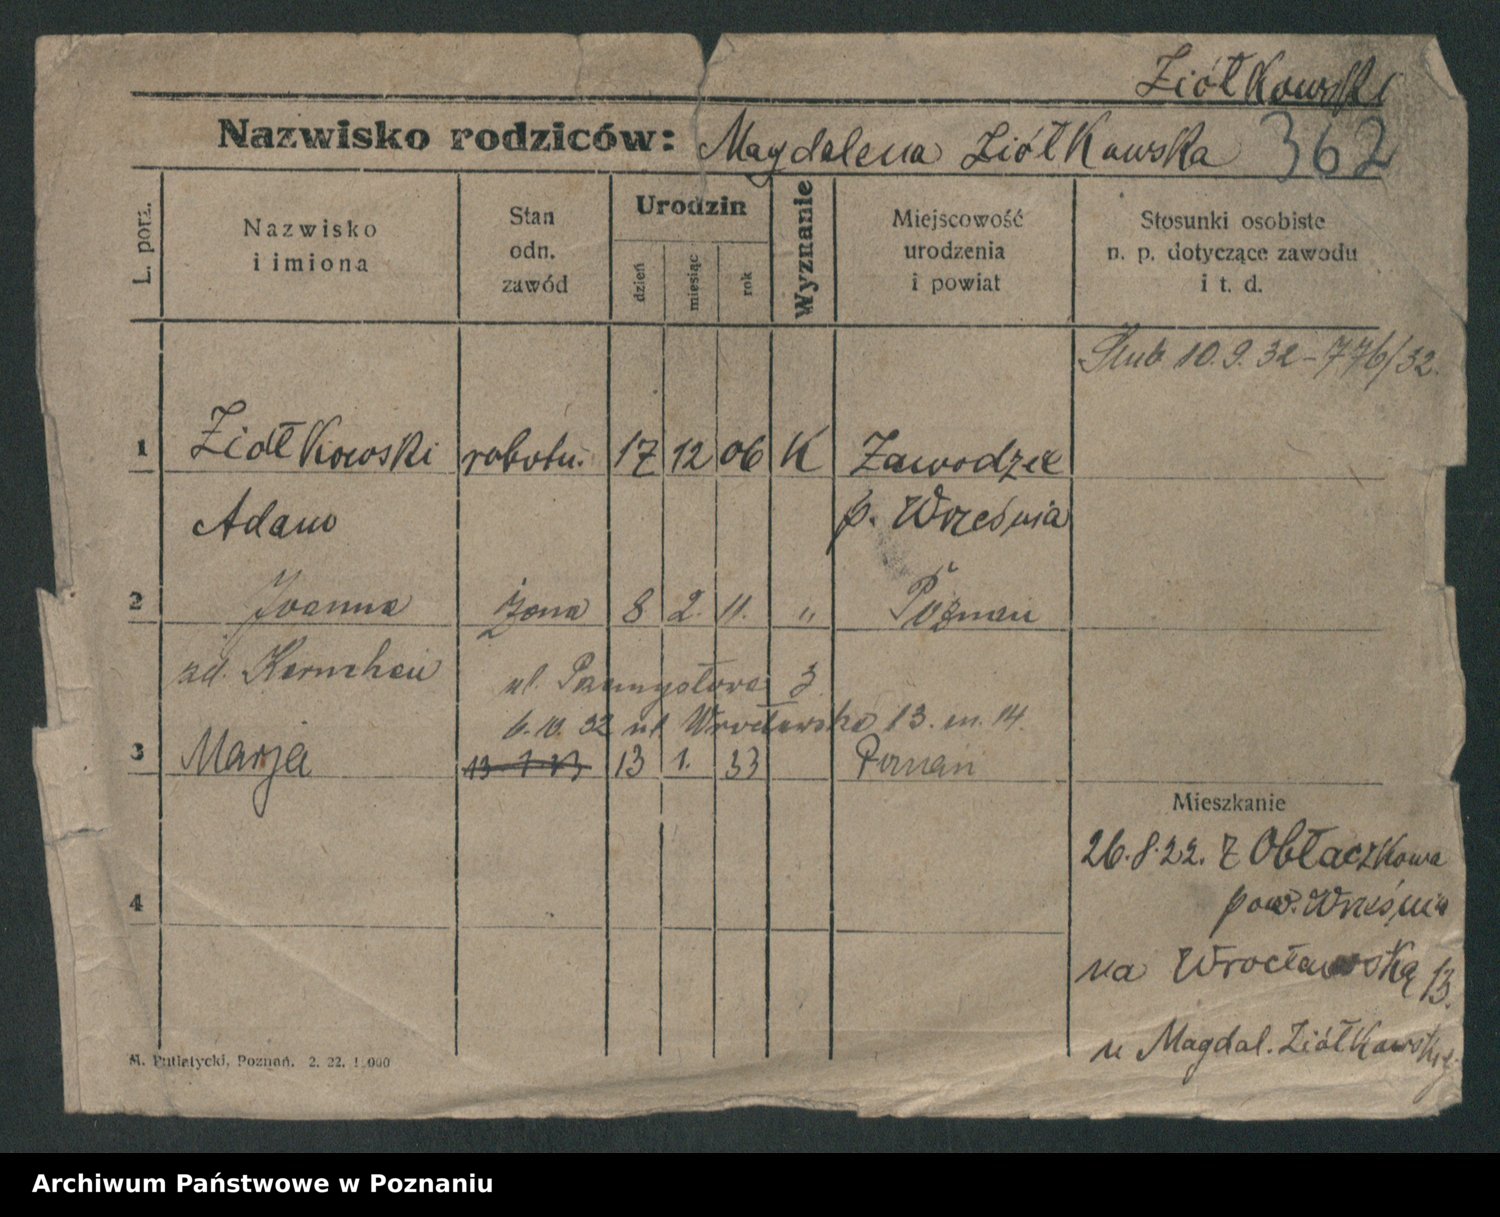 Ziółkowski
Nazwisko rodziców: Magdalena Ziółkowska 362
L. porz.
Nazwisko
i imiona
Stan
odn.
zawód
Urodzin
dzień
miesiąc
rok
Wyznanie
Miejscowość
urodzenia
i powiat
Stosunki osobiste
n. p. dotyczące zawodu
i t. d.
Ślub 10.9.32 - 776/32.
1 Ziółkowski robotn. 17 12 06 K Zawodzee
Adam p. Września
2 Joanna żona 8 2. 11. " Poznań
zd.
ul. Przemysłowa 3
6.10.32 ul Wrocławska 13. m. 14.
3 Marja 13 1. 33 Poznań
Mieszkanie
26.8.22. z Obłaczkowa
pow. Września
4
na Wrocławską 13.
u Magdal. Ziółkowskiej
M. Putiatycki, Poznań. 2. 22. 1.000
Archiwum Państwowe w Poznaniu